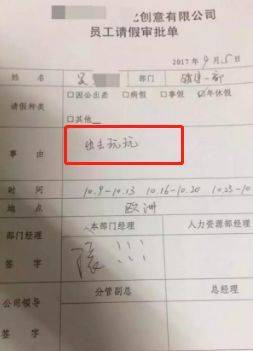 创意有限公司
员工请假审批单
2017年9月5日
姓名 部门 一部
请假种类 □因公出差 □病假 □事假 ☑年休假
□其他
事由 出去玩玩
时间 10.9-10.13 10.16-10.20 10.23-10
地点 欧洲
部门经理签字 本部门经理 人力资源部经理
!!!
公司领导签字 分管副总 总经理